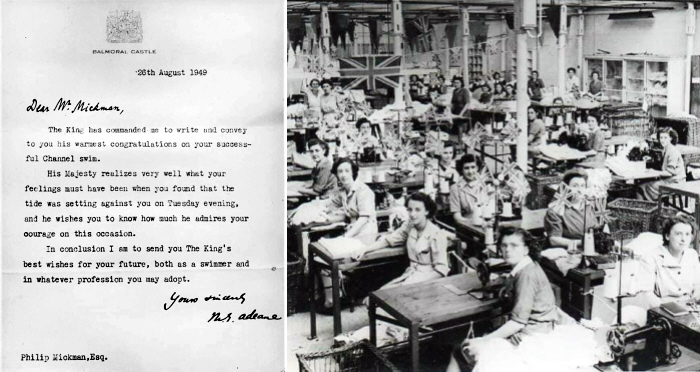 BALMORAL CASTLE
26th August 1949
Dear Mr Mickman,
The King has commanded me to write and convey
to you his warmest congratulations on your success-
ful Channel swim.
His Majesty realizes very well what your
feelings must have been when you found that the
tide was setting against you on Tuesday evening,
and he wishes you to know how much he admires your
courage on this occasion.
In conclusion I am to send you The King's
best wishes for your future, both as a swimmer and
in whatever profession you may adopt.
Yours sincerely
adeane
Philip Mickman,Esq.